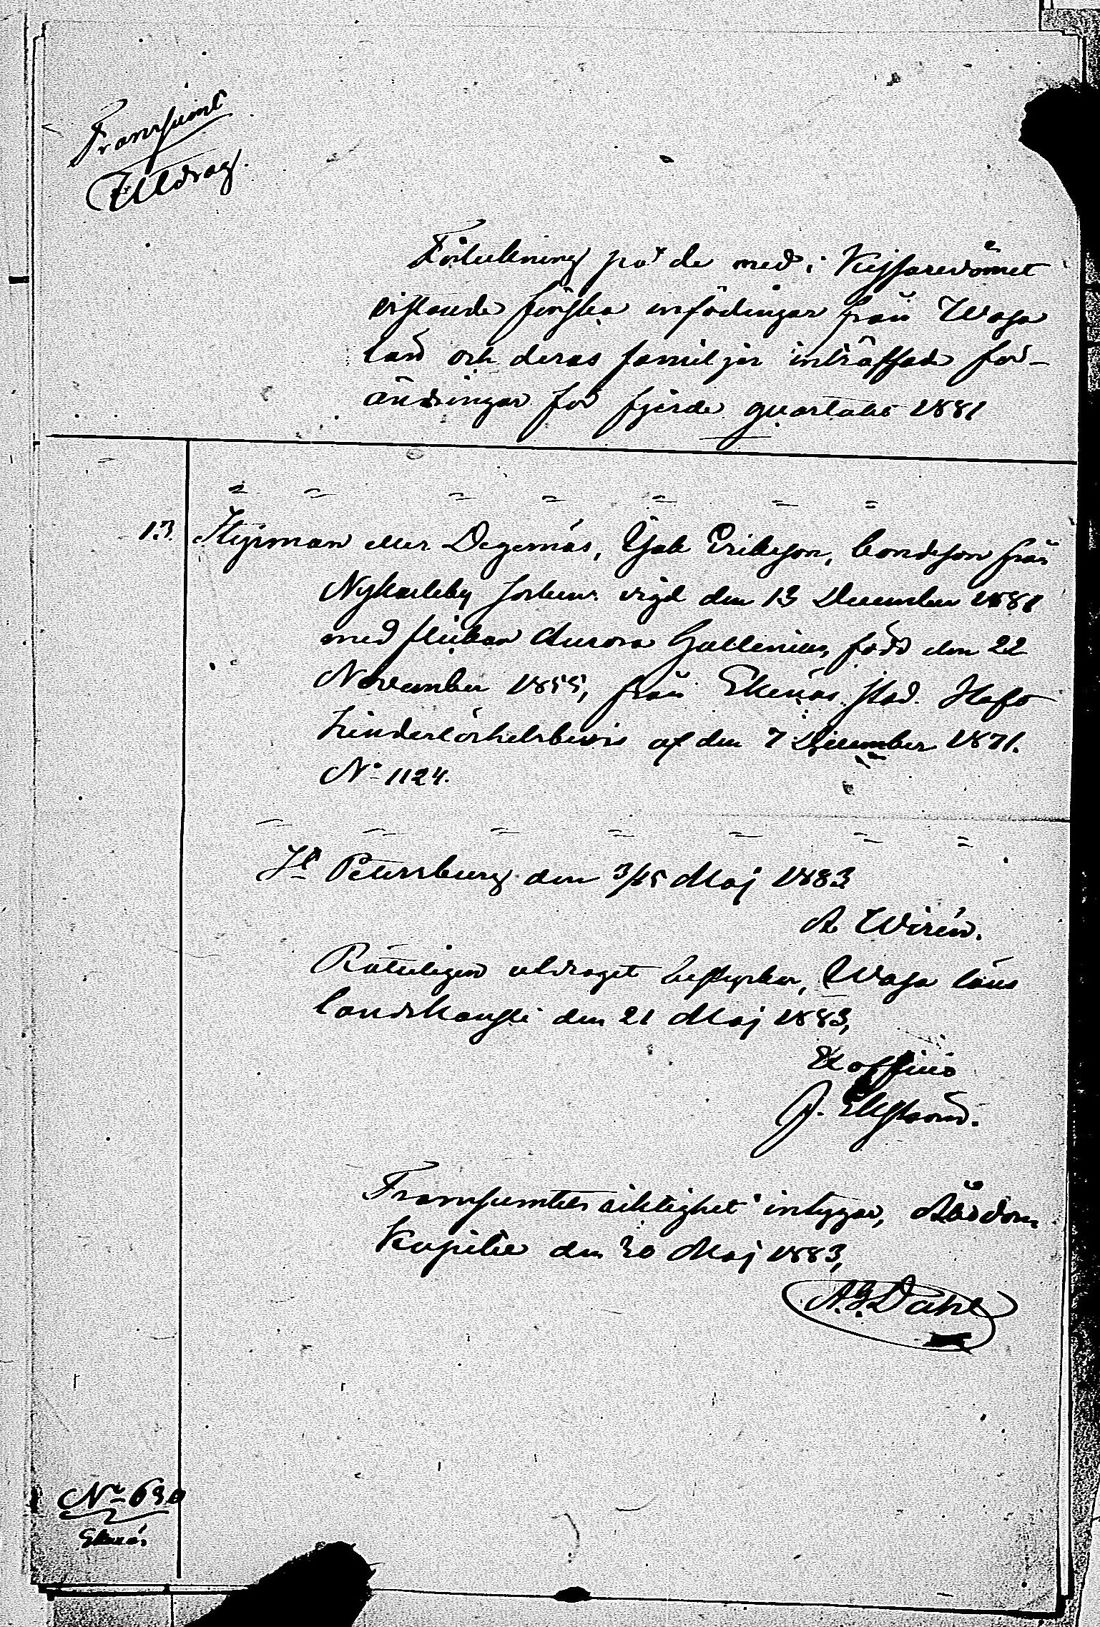 Transsumt
Utdrag.
Förteckning på de med i Kejsaredömet
vistande finska infödingar från Wasa
län och deras familjer inträffade för-
ändringar för fjerde quartalet 1881
13. Styrman eller Degernäs, Isak Erikson, bondeson från
Nykarleby socken vigd den 13 December 1881
med flickan Aurora Gallenius, född den 22
November 1855, från Ekenäs stad. Haft
hinderlöshetsbevis af den 7 December 1871.
No 1124.
St Petersburg den 3/15 Maj 1883
A Wirén.
Rätteligen utdraget bestyrker, Wasa läns
landskansli den 21 Maj 1883,
Ex officio
J. Ekström.
Transsumtets riktighet intygar, Åbo dom
Kapitel den 30 Maj 1883,
A. J. Dahl
No 630
Ekenäs